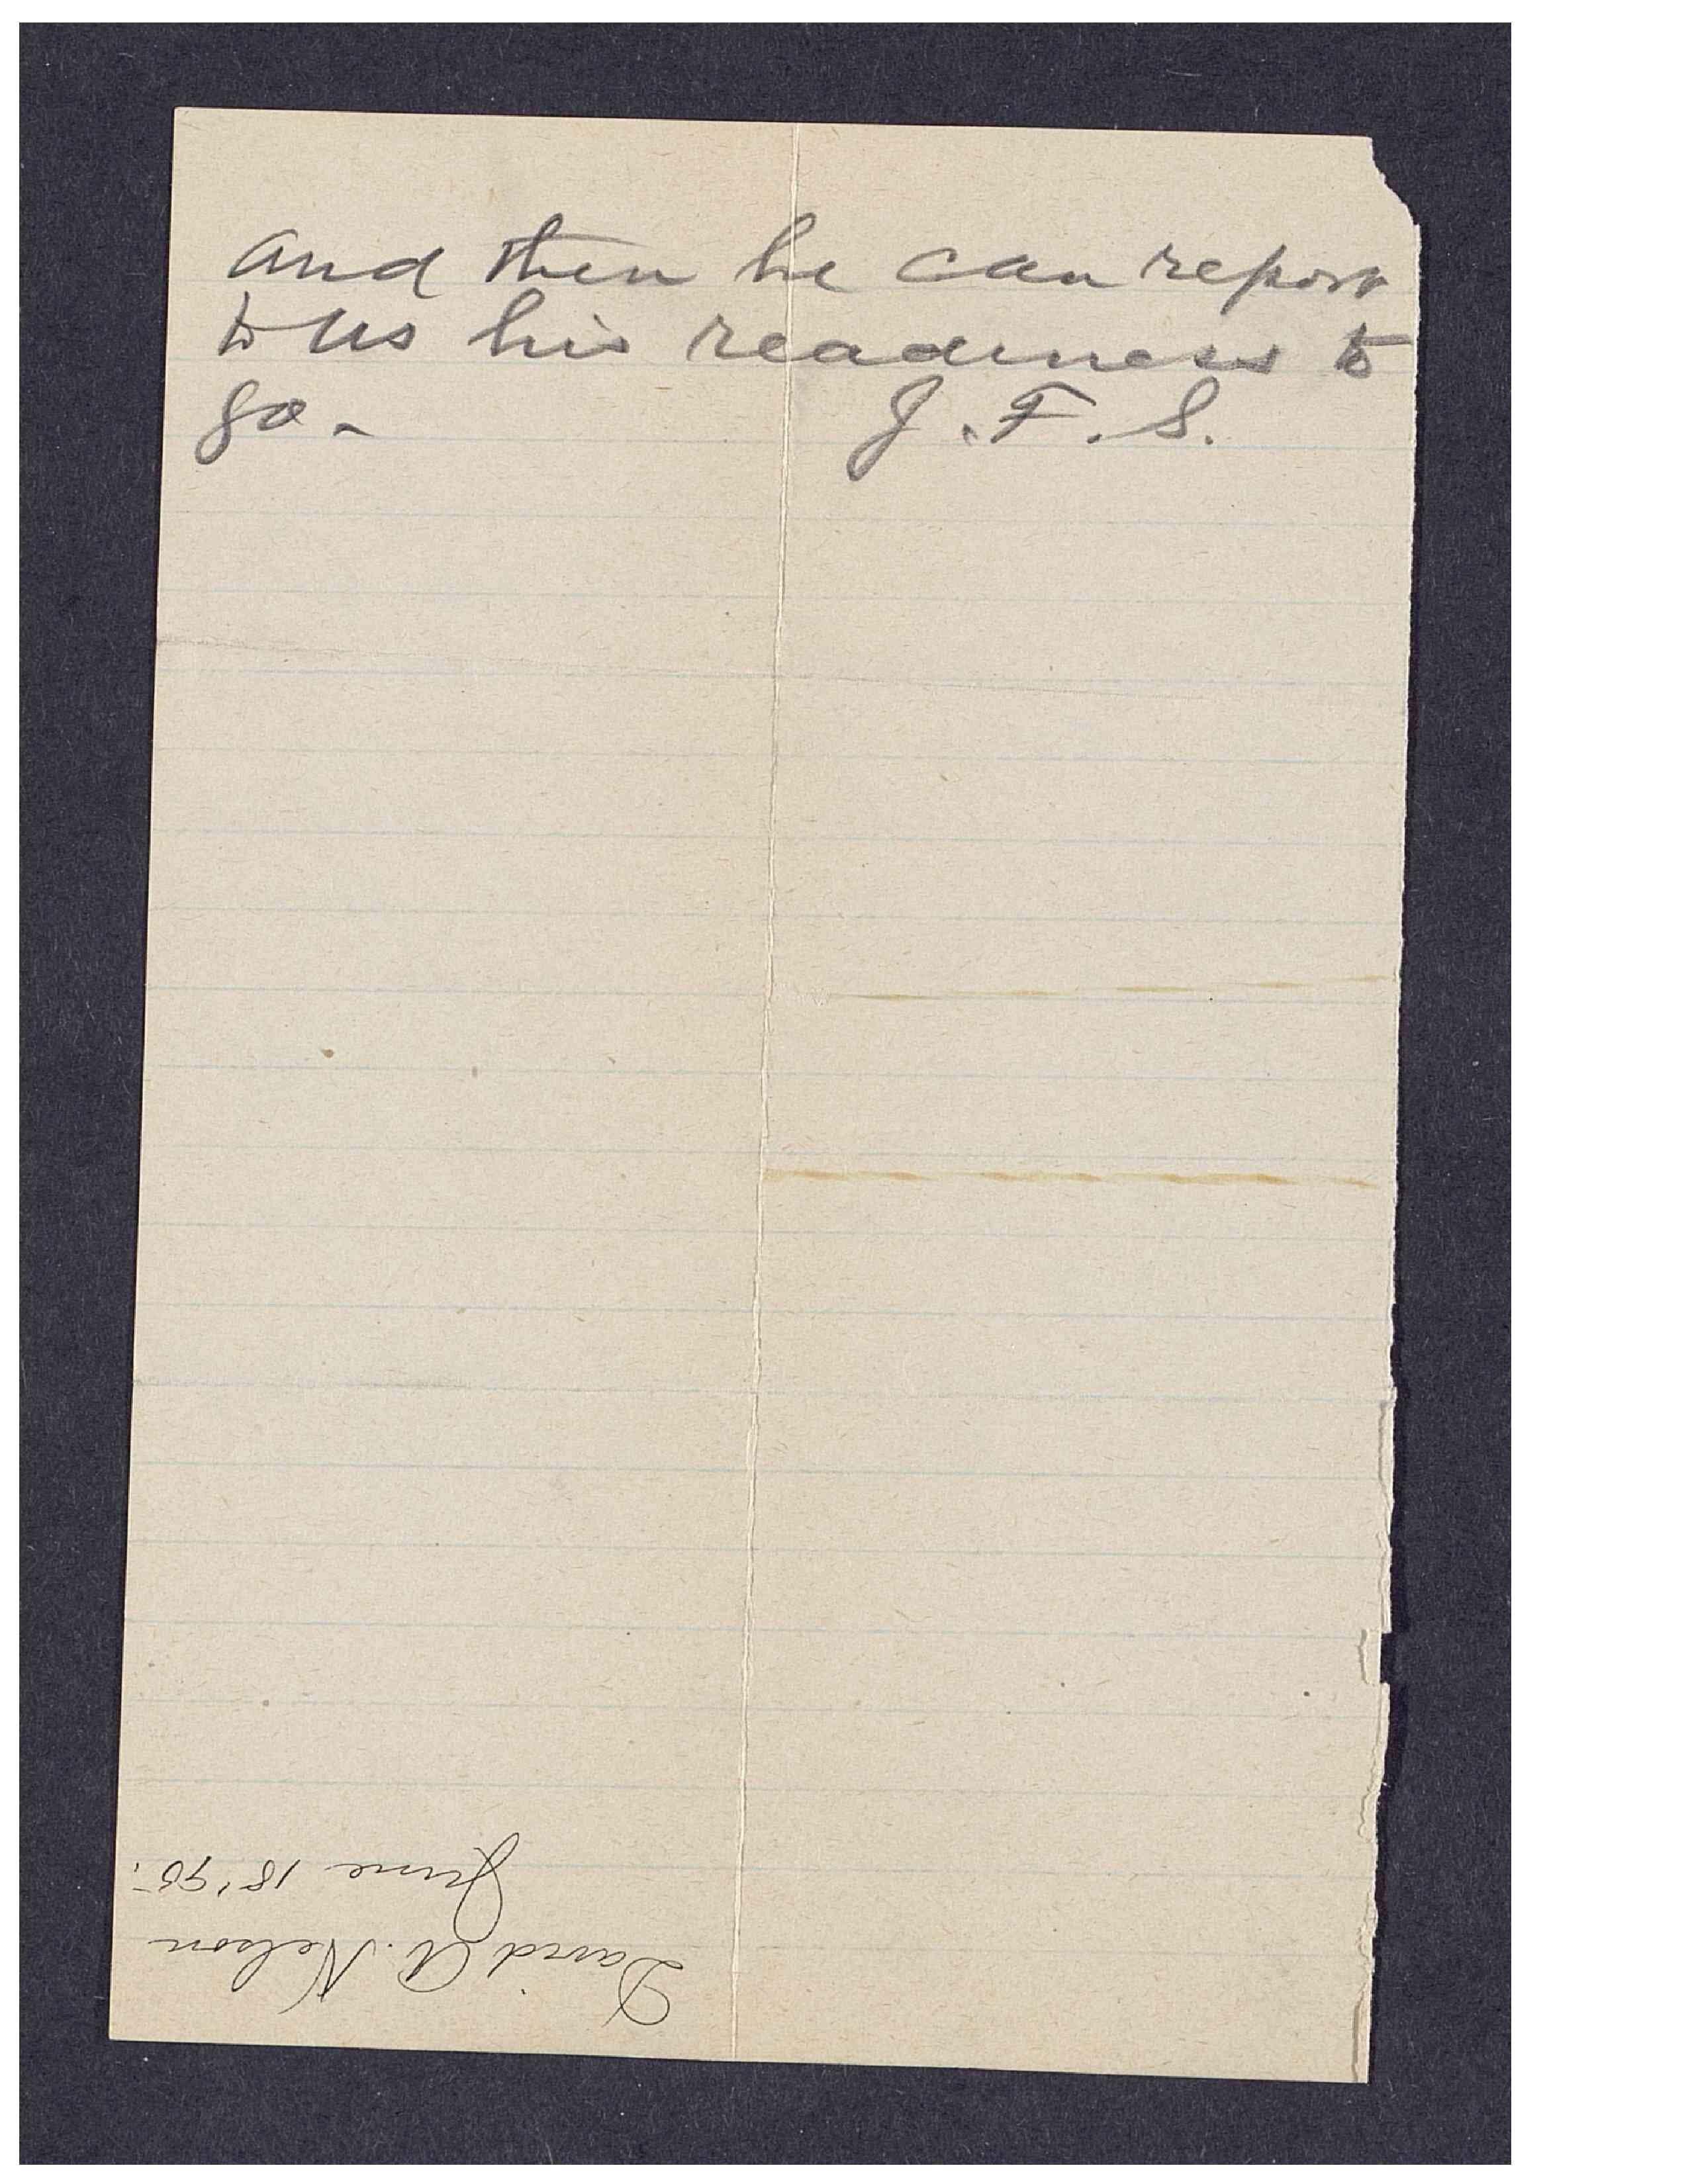 and then he can report
to us his readiness to
go - J. F. S.
David A. Nelson
June 18 '95.